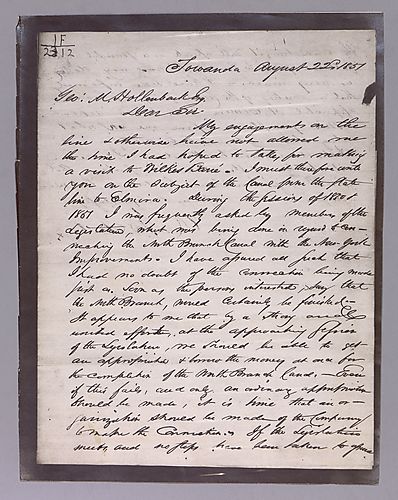 1F
2312
Towanda August 22d 1851
Geo: M. Hollenback Esq
Dear Sir
My engagements on the
line & otherwise have not allowed me
the time I had hoped to take, for making
a visit to Wilkes Barre. I must therefore write
you on the subject of the Canal from the State
line to Elmira. During the sessions of 1850 &
1851 I was frequently asked by members of the
Legislature, what was being done in regard to con-
necting the North Branch Canal with the New York
Improvements. I have assured all such that
I had no doubt of the connection being made
just as soon as the persons interested, say that
the North Branch, would certainly be finished.
It appears to me that by a strong and
united effort, at the approaching session
of the Legislature, we should be able to get
an appropriation & borrow the money at once for
the completion of the North Branch Canal. –
of this fails, and only an ordinary appropriation
should be made, it is time that an or-
ganization should be made of the Company
to make the Connection. If the Legislature
meets, and no steps have been taken to